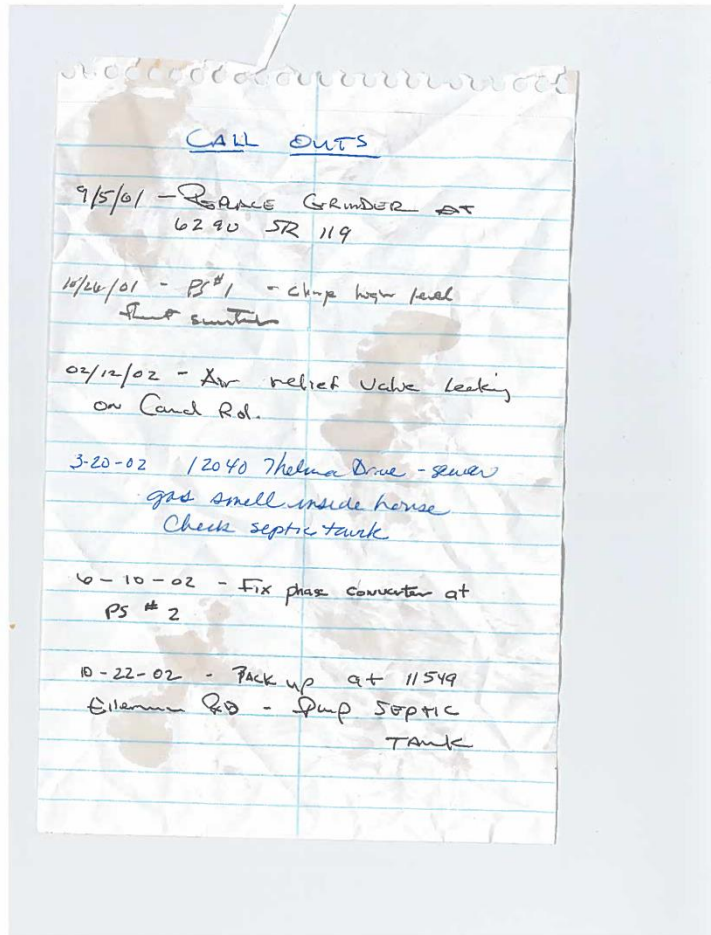 CALL OUTS
9/5/01 - REPLACE GRINDER AT
6290 SR 119
10/26/01 - PS #1 - change high level
float switch
02/12/02 - Air relief valve leaking
on Canal Rd.
3-20-02 12040 Thelma Drive - sewer
gas smell inside house
Check septic tank
6-10-02 - Fix phase converter at
PS # 2
10-22-02 - BACK up at 11549
Eilerman RD - Pump SEPTIC
TANK